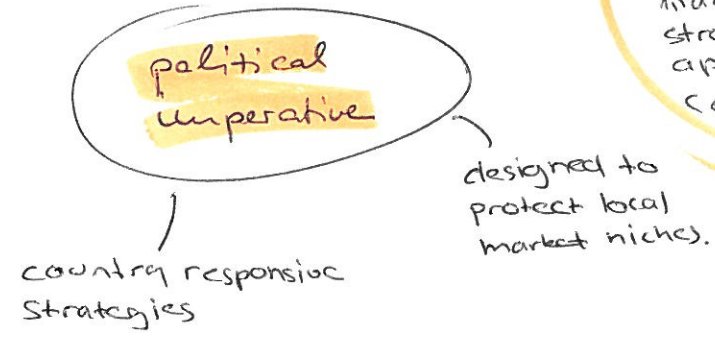 political
imperative
designed to
protect local
market niches.
country responsive
Strategies